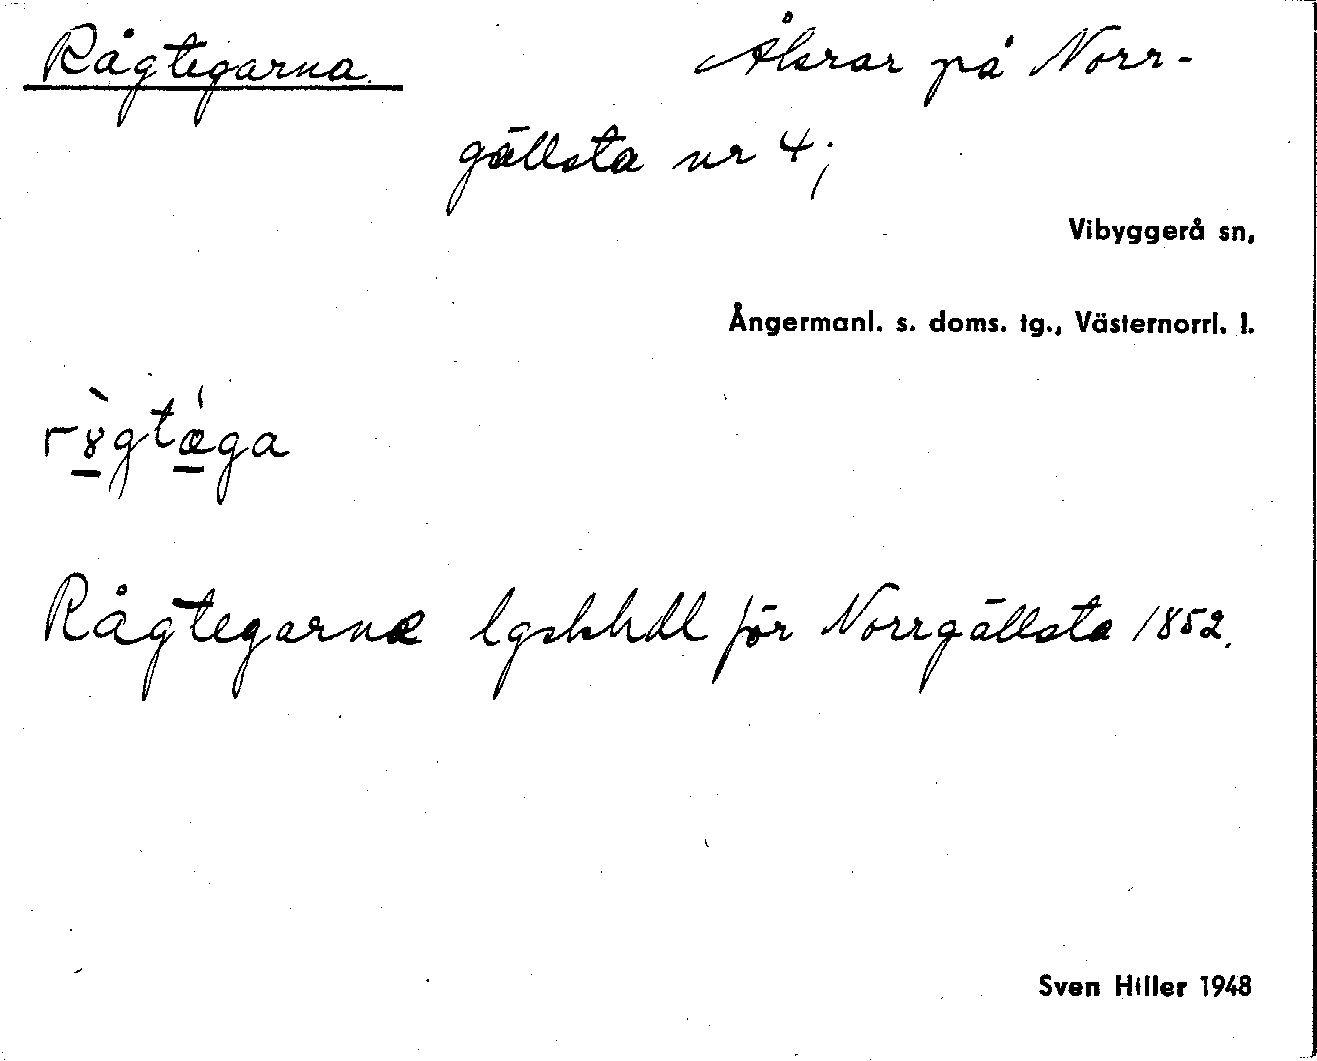 Rågtegarna. Åkrar på Norr-
gällsta nr 4;
Vibyggerå sn,
Ångermanl. s. doms. tg., Västernorrl. l.
rɤ̀gtǽga
Rågtegarne lgskhdl för Norrgällsta 1852.
Sven Hiller 1948